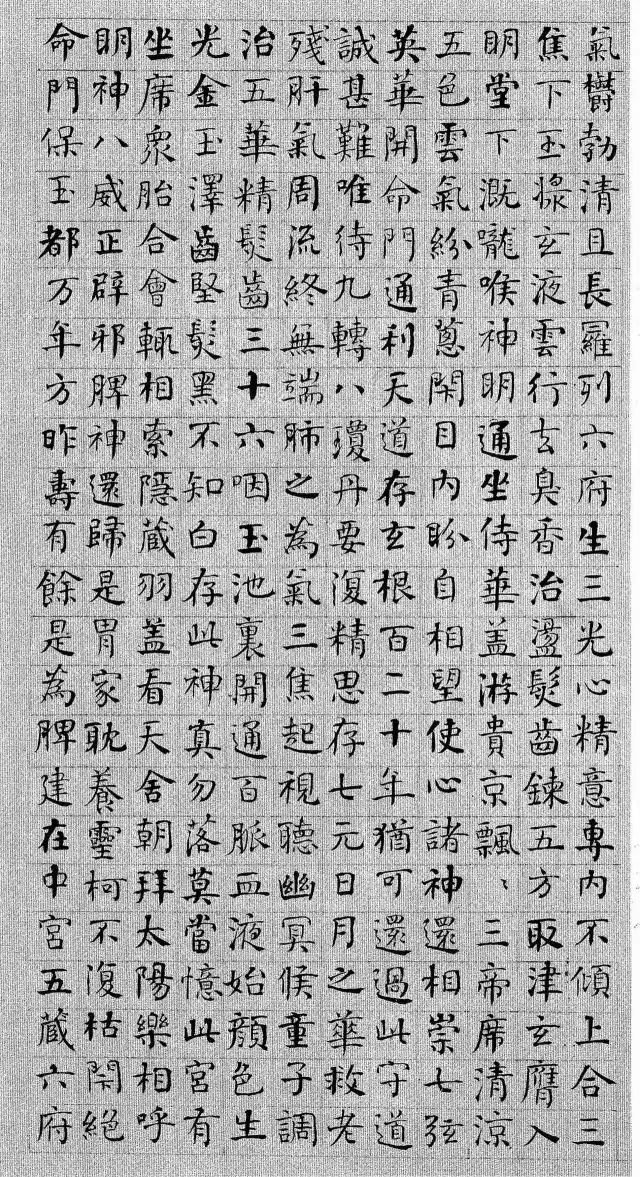 氣欝勃清且長羅列六府生三光心精意專內不傾上合三
焦下玉漿玄液雲行去臭香治盪髮齒鍊五方取津玄膺入
明堂下溉嚨喉神明通坐侍華盖游貴京飄〻三帝席清涼
五色雲氣紛青葱閇目內眄自相望使心諸神還相崇七弦
英華開命門通利天道存玄根百二十年猶可還過此守道
誠甚難唯待九轉八瓊丹要復精思存七元日月之華救老
殘肝氣周流終無端肺之為氣三焦起視聽幽冥候童子調
治五華精髮齒三十六咽玉池裏開通百脈血液始顏色生
光金玉澤齒堅髮黑不知白存此神真勿落莫當憶此宮有
坐席衆胎合會輒相索隱蔵羽盖看天舍朝拜太陽樂相呼
明神八威正辟邪脾神還歸是胃家耽養靈柯不復枯閇絕
命門保玉都万年方昨壽有餘是為脾建在中宮五蔵六府